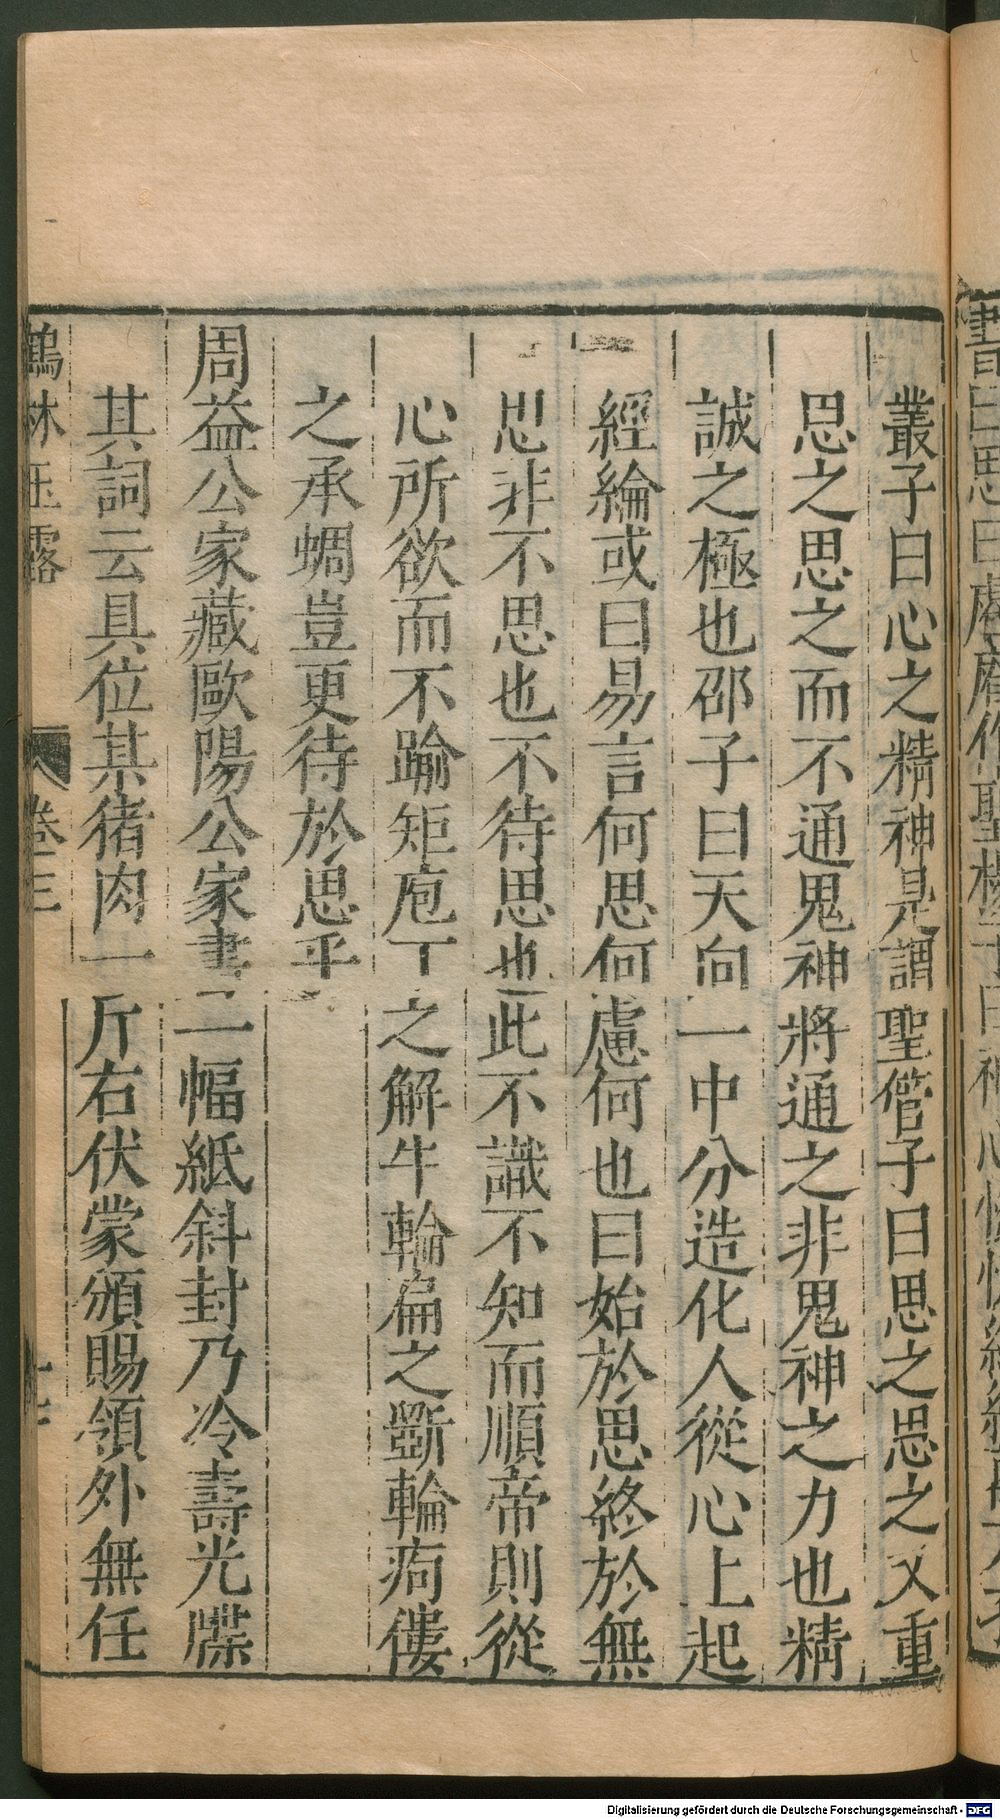 叢子曰心之精神是謂聖管子曰思之思之又重
思之思之而不通鬼神將通之非鬼神之力也精
誠之極也邵子曰天向一中分造化人從心上起
經綸或曰易言何思何慮何也曰始於思終於無
思非不思也不待思也此不識不知而順帝則從
心所欲而不踰矩庖丁之解牛輪扁之斵輪痀僂
之承蜩豈更待於思乎
周益公家藏歐陽公家書一幅紙斜封乃冷壽光牒
其詞云具位某猪肉一斤右伏蒙頒賜領外無任
鶴林玉露
卷三
Digitalisierung gefördert durch die Deutsche Forschungsgemeinschaft - DFG